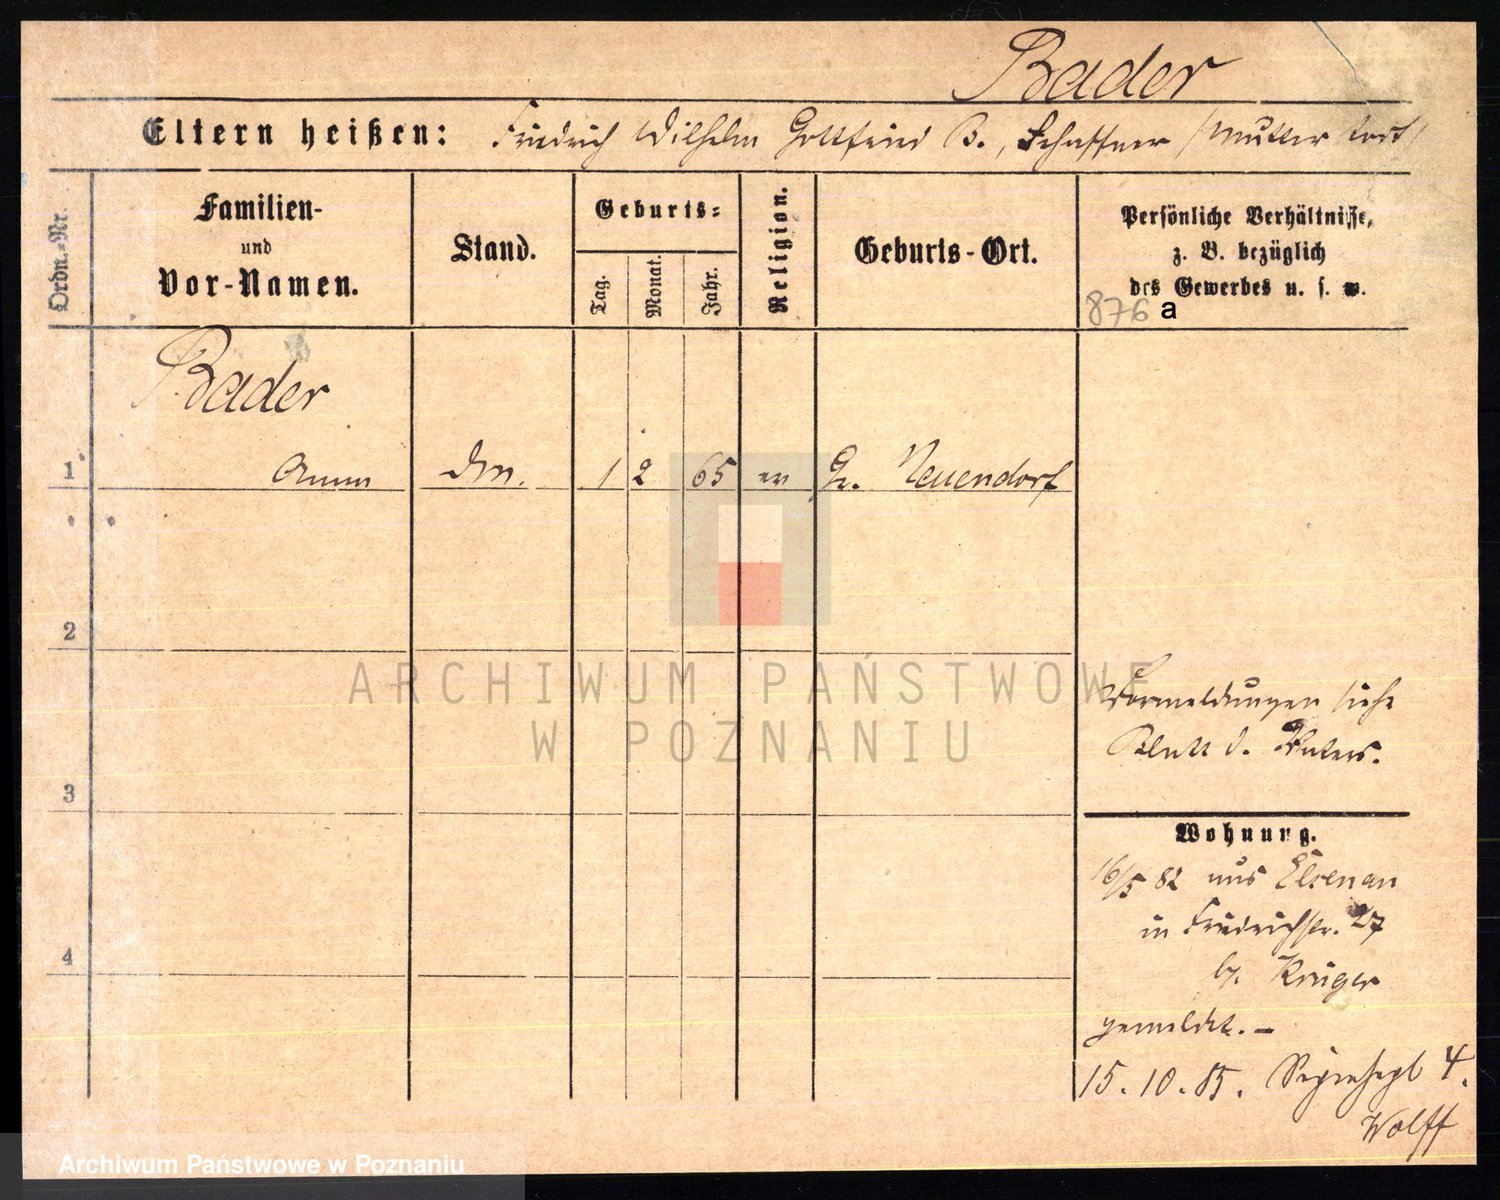 Bader
Eltern heißen: Friedrich Wilhelm Gottfried B., Schaffner /Mutter tot/
Ordn.-Nr.
Familien-
und
Vor-Namen.
Stand.
Geburts-
Tag.
Monat.
Jahr.
Religion.
Geburts-Ort.
Persönliche Verhältnisse,
z. B. bezüglich
des Gewerbes u. s. w.
876 a
Bader
1 Anna 1 2 65 ev Gr. Neuendorf
2
ARCHIWUM PAŃSTWOWE
W POZNANIU
Vormeldungen siehe
Blatt d. Vaters.
3
Wohnung.
16/5 82 aus Elsenau
in Friedrichstr. 27
b/. Krüger
4
gemeldet. –
15. 10. 85. 4.
Wolff
Archiwum Państwowe w Poznaniu